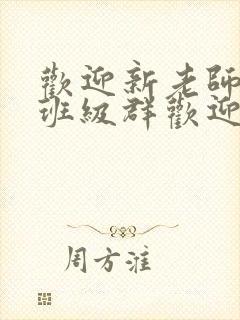 歡迎新老師
班級群歡迎
周方淮